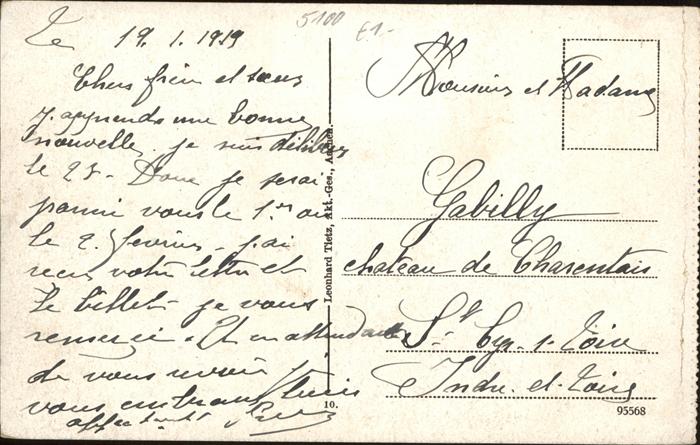 5100 £1-
Le 19.1.1919
Chers frère et sœur
j'apprends une bonne
nouvelle je suis
le 25 - Donc je serai
parmi vous le 1er ou
le 2 février - j'ai
reçu votre lettre et
le billet - je vous
remercie. Et en attendant
de vous revoir
vous embrasse
affectueusement
Leonhard Tietz, Akt.-Ges., Aachen.
10.
Monsieur et Madame
Gabilly
chateau de Charentais
St Cyr-s-Loire
Indre-et-Loire
95568